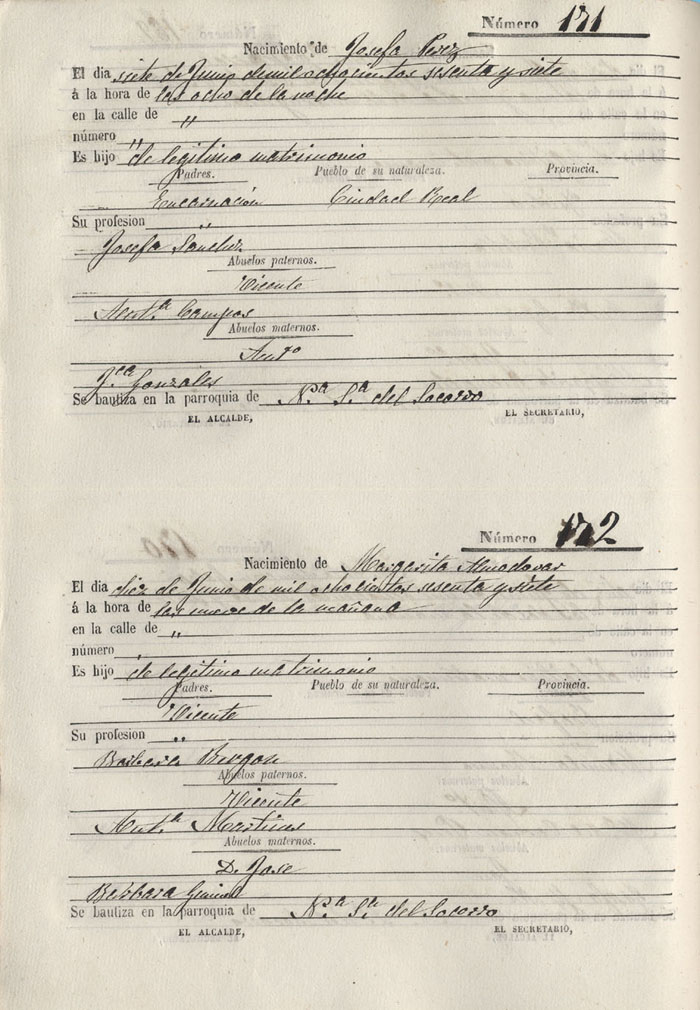 Número 171
Nacimiento de Josefa Perez
El dia siete de Junio de mil ochocientos sesenta y siete
á la hora de las ocho de la noche
en la calle de "
número "
Es hijo de legítimo matrimonio
Padres. Pueblo de su naturaleza. Provincia.
Encarnación Ciudad Real
Su profesion "
Josefa Sanchez
Abuelos paternos.
Vicente
Ant.ª Campos
Abuelos maternos.
Ant.º
J.ca Gonzales
Se bautiza en la parroquia de N.ª S.ª del Socorro
EL ALCALDE, EL SECRETARIO,
Número 172
Nacimiento de Margarita Almodovar
El dia diez de Junio de mil ochocientos sesenta y siete
á la hora de las nueve de la mañana
en la calle de "
número "
Es hijo de legitimo matrimonio
Padres. Pueblo de su naturaleza. Provincia.
Vicente
Su profesion "
Barbara
Abuelos paternos.
Vicente
Ant.ª Martinez
Abuelos maternos.
D. Jose
Barbara
Se bautiza en la parroquia de N.ª S.ª del Socorro
EL ALCALDE, EL SECRETARIO,